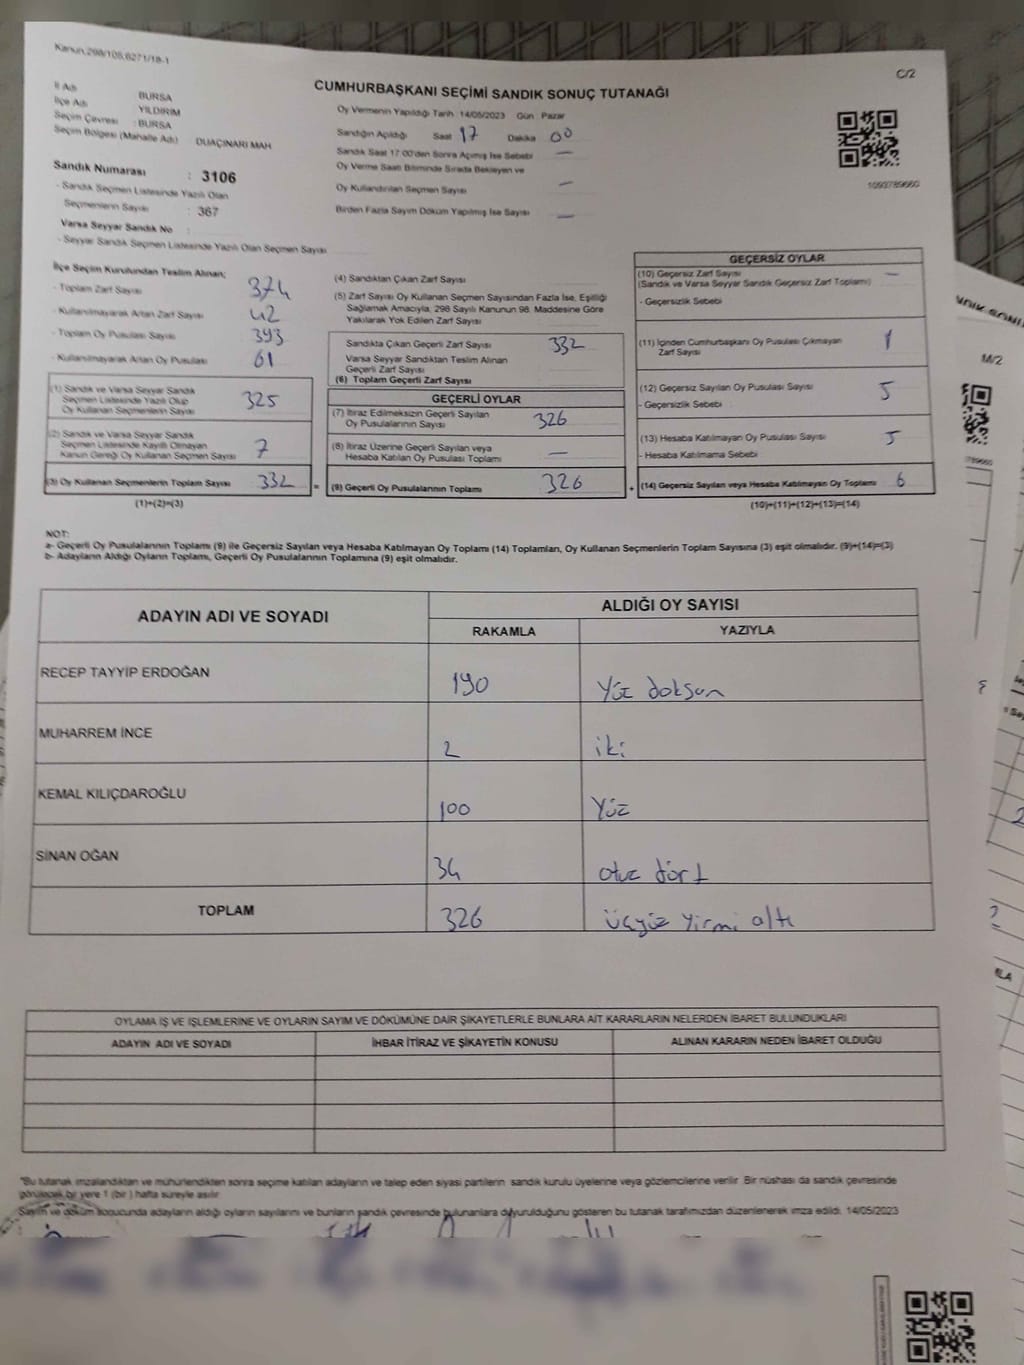 Kanun,298/105,6271/18-1
C/2
CUMHURBAŞKANI SEÇİMİ SANDIK SONUÇ TUTANAĞI
İl Adı BURSA
İlçe Adı YILDIRIM
Seçim Çevresi : BURSA
Seçim Bölgesi (Mahalle Adı) : DUAÇINARI MAH
Sandık Numarası : 3106
- Sandık Seçmen Listesinde Yazılı Olan
Seçmenlerin Sayısı : 367
Varsa Seyyar Sandık No :
- Seyyar Sandık Seçmen Listesinde Yazılı Olan Seçmen Sayısı
Oy Vermenin Yapıldığı Tarih : 14/05/2023 Gün : Pazar
Sandığın Açıldığı Saat 17 Dakika 00
Sandık Saat 17:00'den Sonra Açılmış İse Sebebi —
Oy Verme Saati Bitiminde Sırada Bekleyen ve
Oy Kullandırılan Seçmen Sayısı —
Birden Fazla Sayım Döküm Yapılmış İse Sayısı —
1093789660
İlçe Seçim Kurulundan Teslim Alınan;
- Toplam Zarf Sayısı 374
- Kullanılmayarak Artan Zarf Sayısı 42
- Toplam Oy Pusulası Sayısı 393
- Kullanılmayarak Artan Oy Pusulası 61
(1) Sandık ve Varsa Seyyar Sandık
Seçmen Listesinde Yazılı Olup
Oy Kullanan Seçmenlerin Sayısı 325
(2) Sandık ve Varsa Seyyar Sandık
Seçmen Listesinde Kayıtlı Olmayan
Kanun Gereği Oy Kullanan Seçmen Sayısı 7
(3) Oy Kullanan Seçmenlerin Toplam Sayısı 332 =
(1)+(2)=(3)
(4) Sandıktan Çıkan Zarf Sayısı
(5) Zarf Sayısı Oy Kullanan Seçmen Sayısından Fazla İse, Eşitliği
Sağlamak Amacıyla, 298 Sayılı Kanunun 98. Maddesine Göre
Yakılarak Yok Edilen Zarf Sayısı
Sandıkta Çıkan Geçerli Zarf Sayısı 332
Varsa Seyyar Sandıktan Teslim Alınan
Geçerli Zarf Sayısı
(6) Toplam Geçerli Zarf Sayısı
GEÇERLİ OYLAR
(7) İtiraz Edilmeksizin Geçerli Sayılan
Oy Pusulalarının Sayısı 326
(8) İtiraz Üzerine Geçerli Sayılan veya
Hesaba Katılan Oy Pusulası Toplamı —
(9) Geçerli Oy Pusulalarının Toplamı 326 +
GEÇERSİZ OYLAR
(10) Geçersiz Zarf Sayısı —
(Sandık ve Varsa Seyyar Sandık Geçersiz Zarf Toplamı)
- Geçersizlik Sebebi
(11) İçinden Cumhurbaşkanı Oy Pusulası Çıkmayan
Zarf Sayısı 1
(12) Geçersiz Sayılan Oy Pusulası Sayısı 5
- Geçersizlik Sebebi
(13) Hesaba Katılmayan Oy Pusulası Sayısı 5
- Hesaba Katılmama Sebebi
(14) Geçersiz Sayılan veya Hesaba Katılmayan Oy Toplamı 6
(10)+(11)+(12)+(13)=(14)
NOT:
a- Geçerli Oy Pusulalarının Toplamı (9) ile Geçersiz Sayılan veya Hesaba Katılmayan Oy Toplamı (14) Toplamları, Oy Kullanan Seçmenlerin Toplam Sayısına (3) eşit olmalıdır. (9)+(14)=(3)
b- Adayların Aldığı Oyların Toplamı, Geçerli Oy Pusulalarının Toplamına (9) eşit olmalıdır.
ADAYIN ADI VE SOYADI
ALDIĞI OY SAYISI
RAKAMLA YAZIYLA
RECEP TAYYİP ERDOĞAN 190 Yüz doksan
MUHARREM İNCE 2 iki
KEMAL KILIÇDAROĞLU 100 Yüz
SİNAN OĞAN 34 otuz dört
TOPLAM 326 üçyüz yirmi altı
OYLAMA İŞ VE İŞLEMLERİNE VE OYLARIN SAYIM VE DÖKÜMÜNE DAİR ŞİKAYETLERLE BUNLARA AİT KARARLARIN NELERDEN İBARET BULUNDUKLARI
ADAYIN ADI VE SOYADI İHBAR İTİRAZ VE ŞİKAYETİN KONUSU ALINAN KARARIN NEDEN İBARET OLDUĞU
*Bu tutanak imzalandıktan ve mühürlendikten sonra seçime katılan adayların ve talep eden siyasi partilerin sandık kurulu üyelerine veya gözlemcilerine verilir. Bir nüshası da sandık çevresinde
görülecek bir yere 1 (bir) hafta süreyle asılır.
Sayım ve döküm sonucunda adayların aldığı oyların sayılarını ve bunların sandık çevresinde bulunanlara duyurulduğunu gösteren bu tutanak tarafımızdan düzenlenerek imza edildi. 14/05/2023
M/2